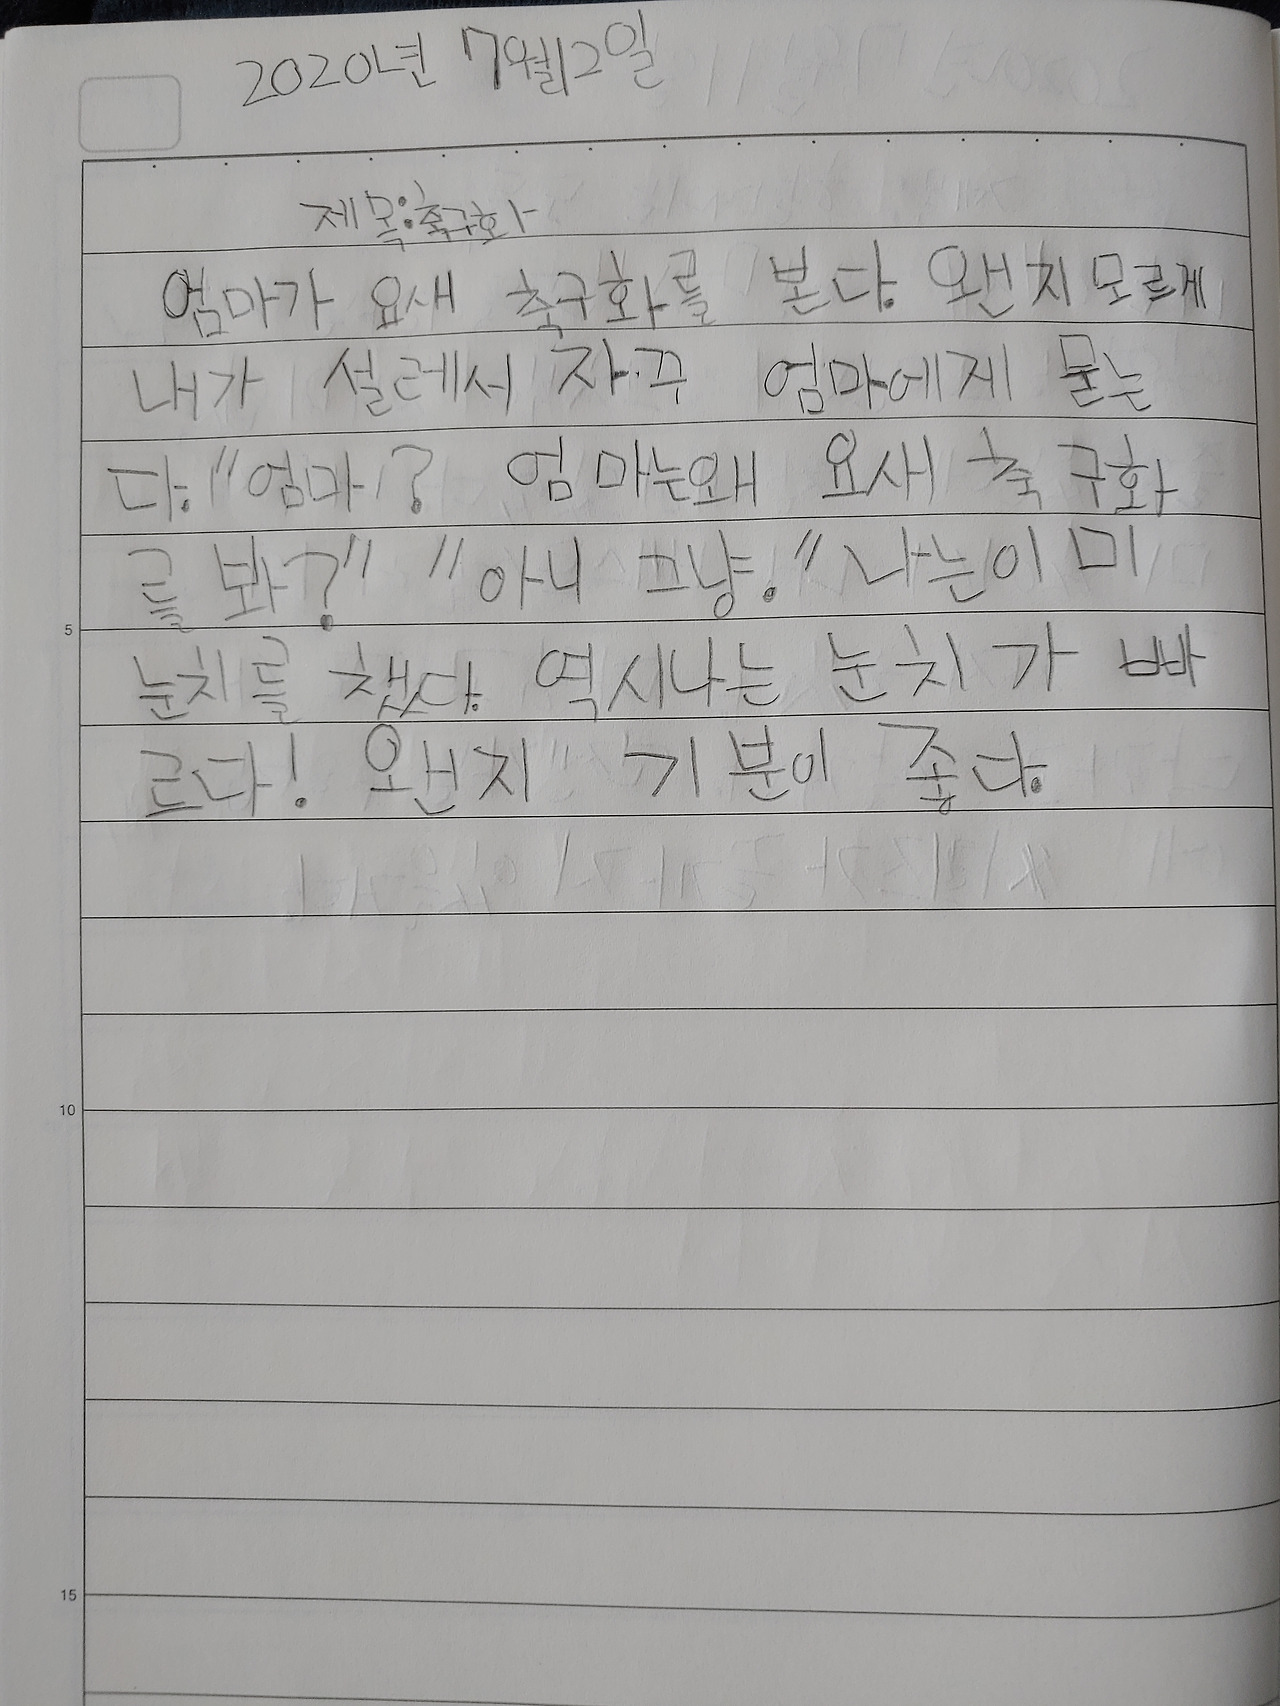 2020년 7월12일
제목:축구화
엄마가 요새 축구화를 본다. 왠치 모르게
내가 설레서 자꾸 엄마에게 묻는
다. "엄마? 엄마는왜 요새 축구화
를 봐?" "아니 그냥." 나는이미
눈치를 챘다. 역시나는 눈치가 빠
르다! 왠지 기분이 좋다.
5
10
15